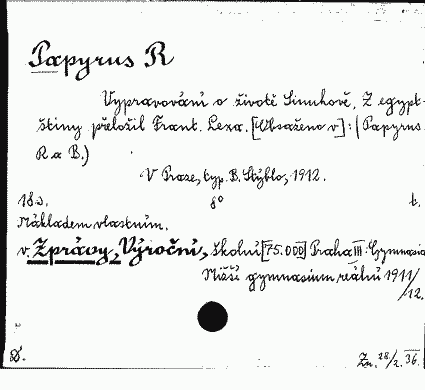 Papyrus R
Vypravování o životě Sinuhově. Z egypt-
štiny přeložil Frant. Lexa. [Obsaženo v]: (Papyrus
R a B.)
V Praze, typ. B. Stýblo, 1912.
18 s. 8° b.
Nákladem vlastním.
v. Zprávy, Výroční, školní [75.000] Praha III: Gymnasia
Nižší gymnasium reálné 1911/
/12.
Zn. 28/2. 36.